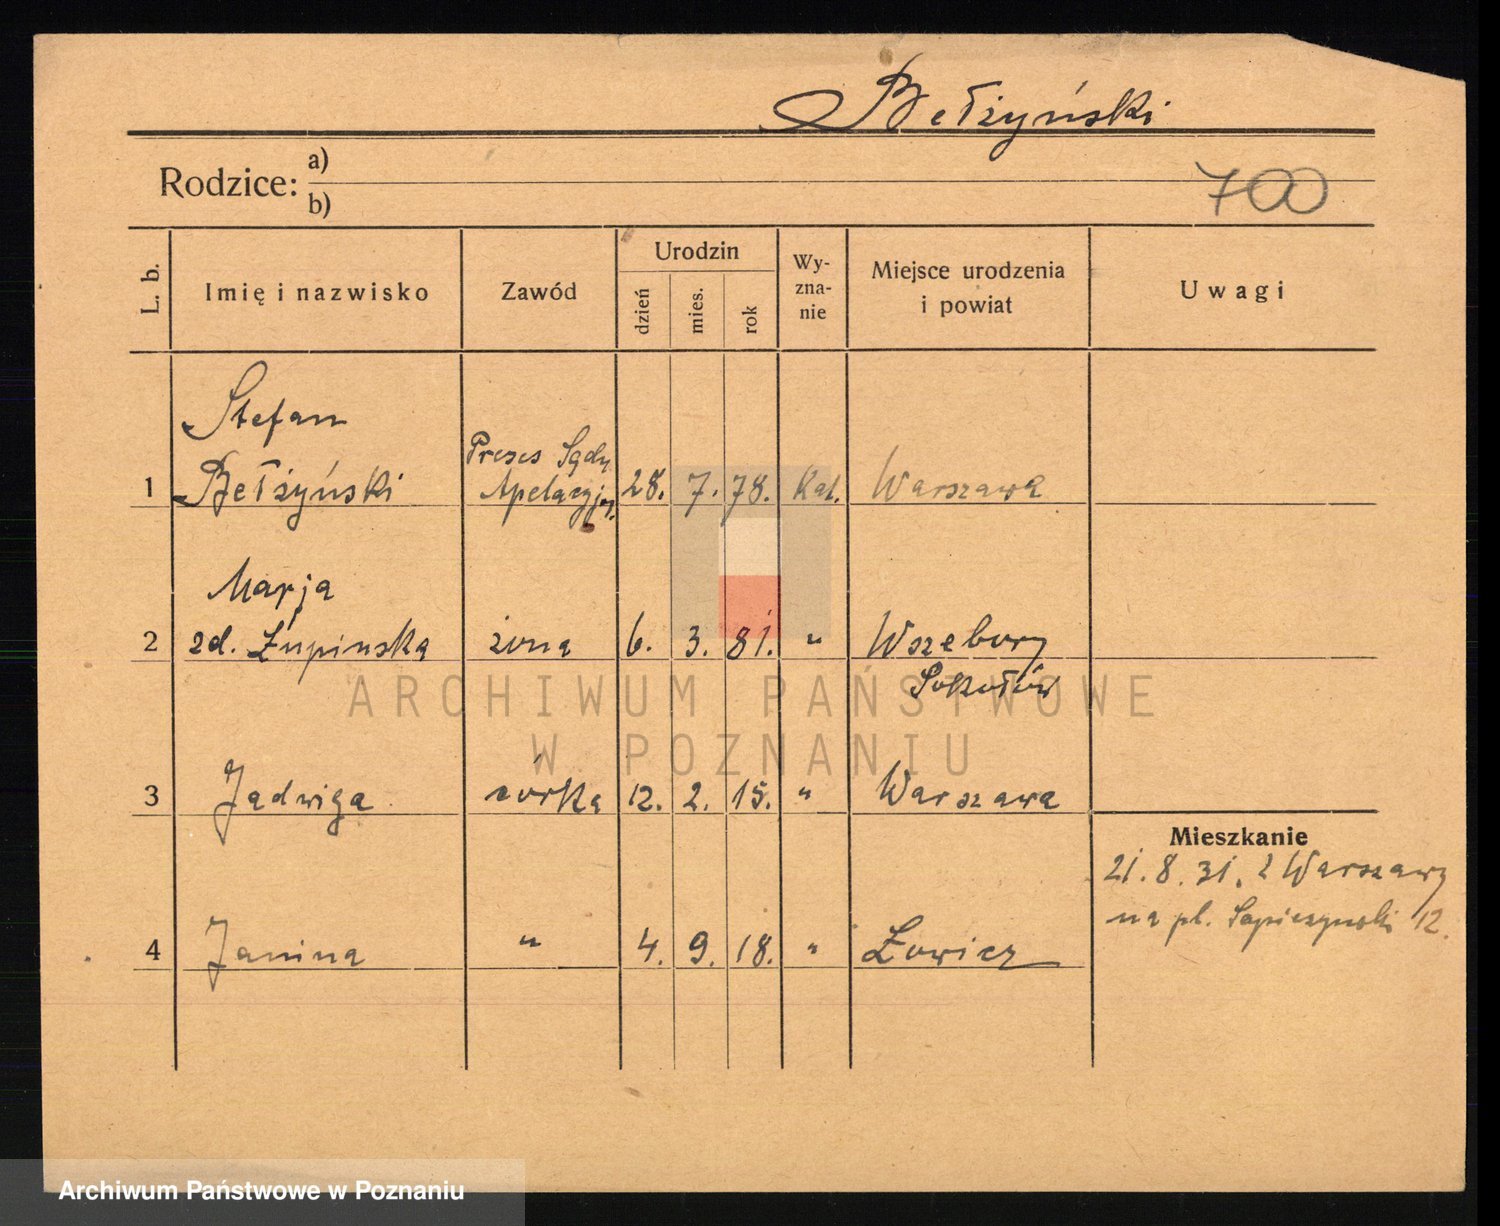 Bełżyński
Rodzice: a)
b)
700
L. b.
Imię i nazwisko
Zawód
Urodzin
dzień
mies.
rok
Wy-
zna-
nie
Miejsce urodzenia
i powiat
Uwagi
Stefan
Prezes Sądu
1 Bełżyński Apelacyjn. 28. 7. 78. Kat. Warszawa
Marja
2 zd. Łupinska żona 6. 3. 81. " Wszebory
Sokołów
ARCHIWUM PAŃSTWOWE
W POZNANIU
3 Jadwiga córka 12. 2. 15. " Warszawa
Mieszkanie
21. 8. 31. z Warszawy
na pl. Sapieżyński 12.
4 Janina " 4. 9. 18. " Łowicz
Archiwum Państwowe w Poznaniu